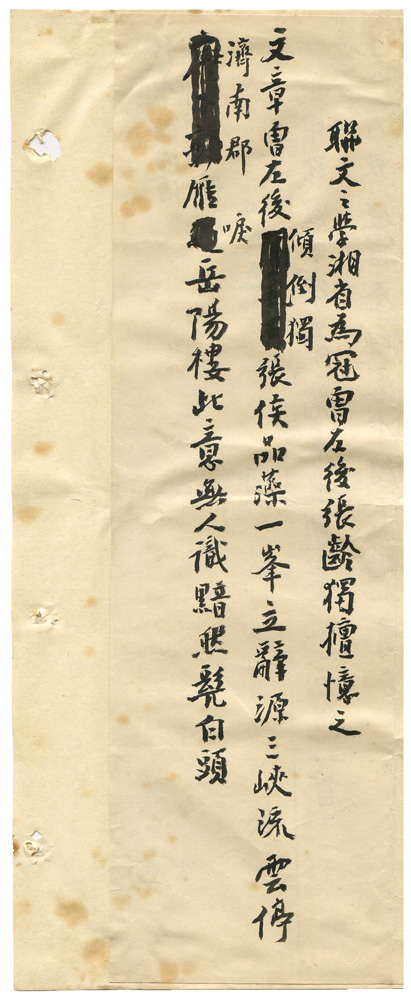 聯文之學湘省為冠曾左後張齡獨擅憶之
文章曾左後傾倒獨張侯品藻一峯立辭源三峽流雲停
濟南郡雁唳岳陽樓此意無人識黯然白頭